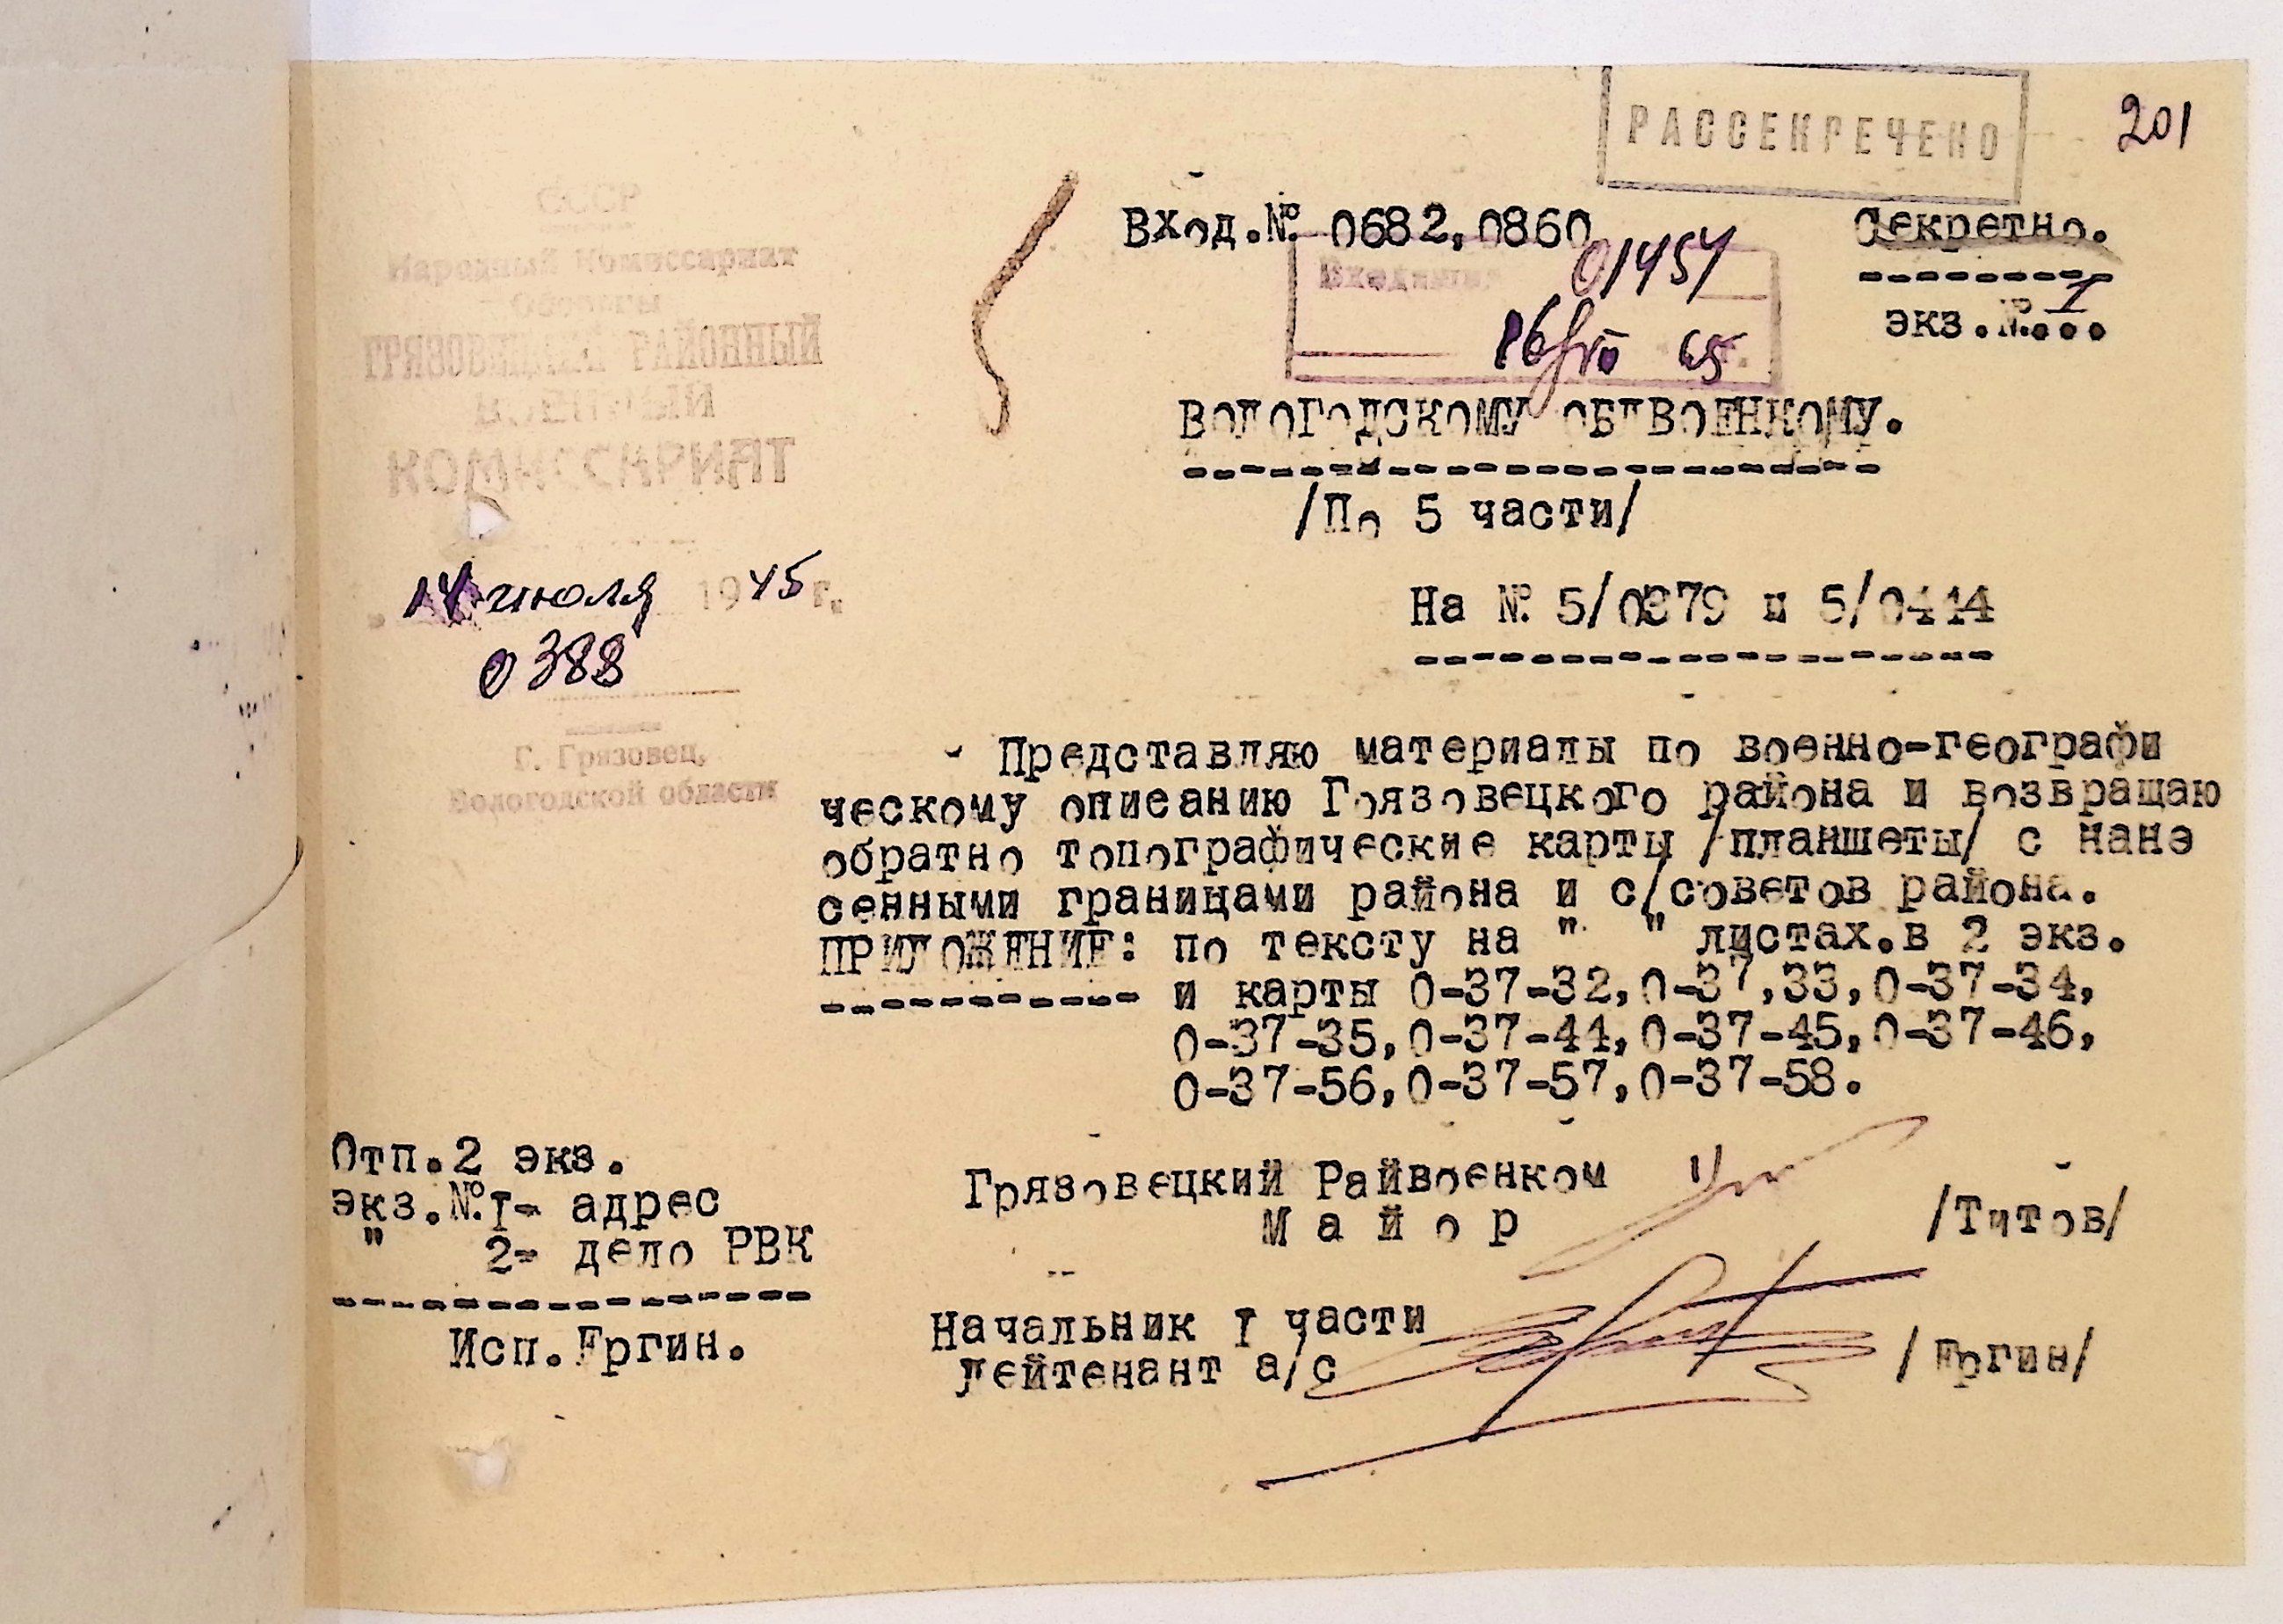 РАССЕКРЕЧЕНО
201
СССР
Народный Комиссариат
Обороны
ГРЯЗОВЕЦКИЙ РАЙОННЫЙ
ВОЕННЫЙ
КОМИССАРИАТ
14 июля 1945 г.
0388
Г. Грязовец,
Вологодской области
Вход.№ 0682,0860
Секретно.
экз.№ I...
Входящий 01454
16/VII 45 г.
ВОЛОГОДСКОМУ ОБЛВОЕНКОМУ.
/По 5 части/
На № 5/0379 и 5/0414
Представляю материалы по военно-географи
ческому описанию Грязовецкого района и возвращаю
обратно топографические карты /планшеты/ с нанэ
сенными границами района и с/советов района.
ПРИЛОЖЕНИЕ: по тексту на " " листах.в 2 экз.
и карты 0-37-32,0-37,33,0-37-34,
0-37-35,0-37-44,0-37-45,0-37-46,
0-37-56,0-37-57,0-37-58.
Отп.2 экз.
экз.№ I- адрес
" 2- дело РВК
Исп.Ергин.
Грязовецкий Райвоенком
Майор /Титов/
Начальник I части
лейтенант а/с /Ергин/